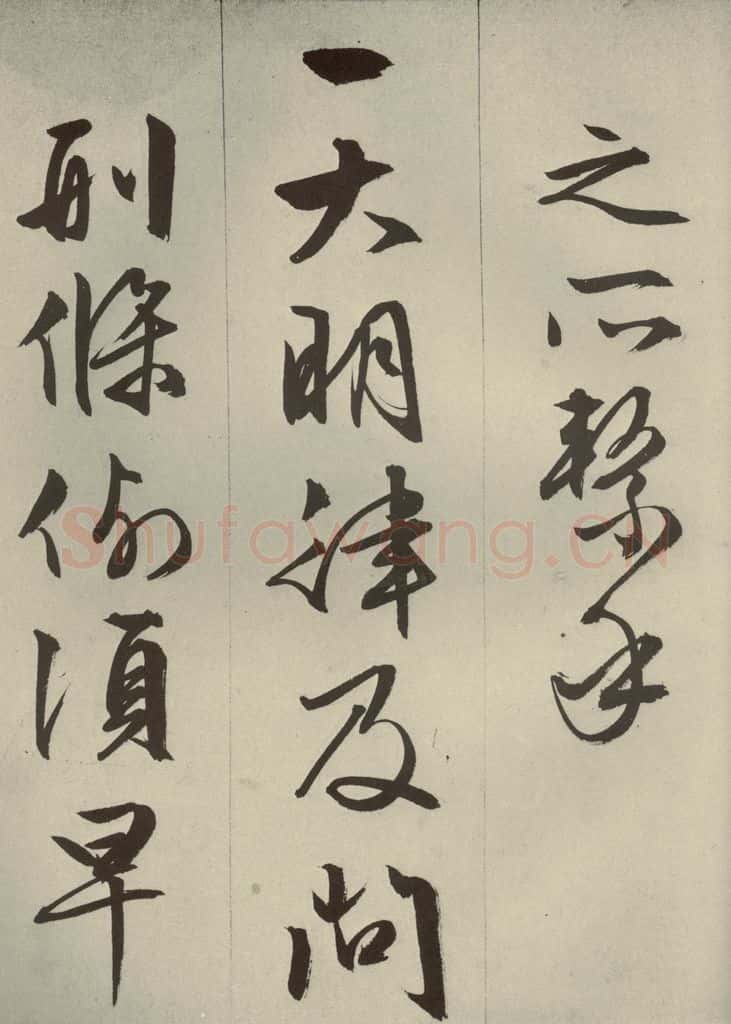 之所繫
一大明律及問
刑條例須早
Shufawang.CN